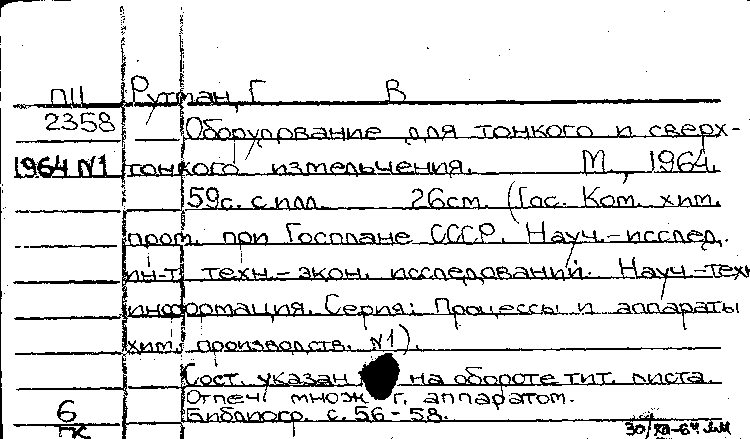 П11 Рутман, Г В
2358 Оборудование для тонкого и сверх-
1964 N1 тонкого измельчения. М., 1964.
59с. с илл. 26см. (Гос. Ком. хим.
пром. при Госплане СССР. Науч.-исслед.
ин-т техн.-экон. исследований. Науч.-техн
информация. Серия: Процессы и аппараты
хим. производств. N1).
Сост. указан на обороте тит. листа.
Отпеч. множ. г. аппаратом.
6 Библиогр. с. 56-58.
ГК 30/XII-64